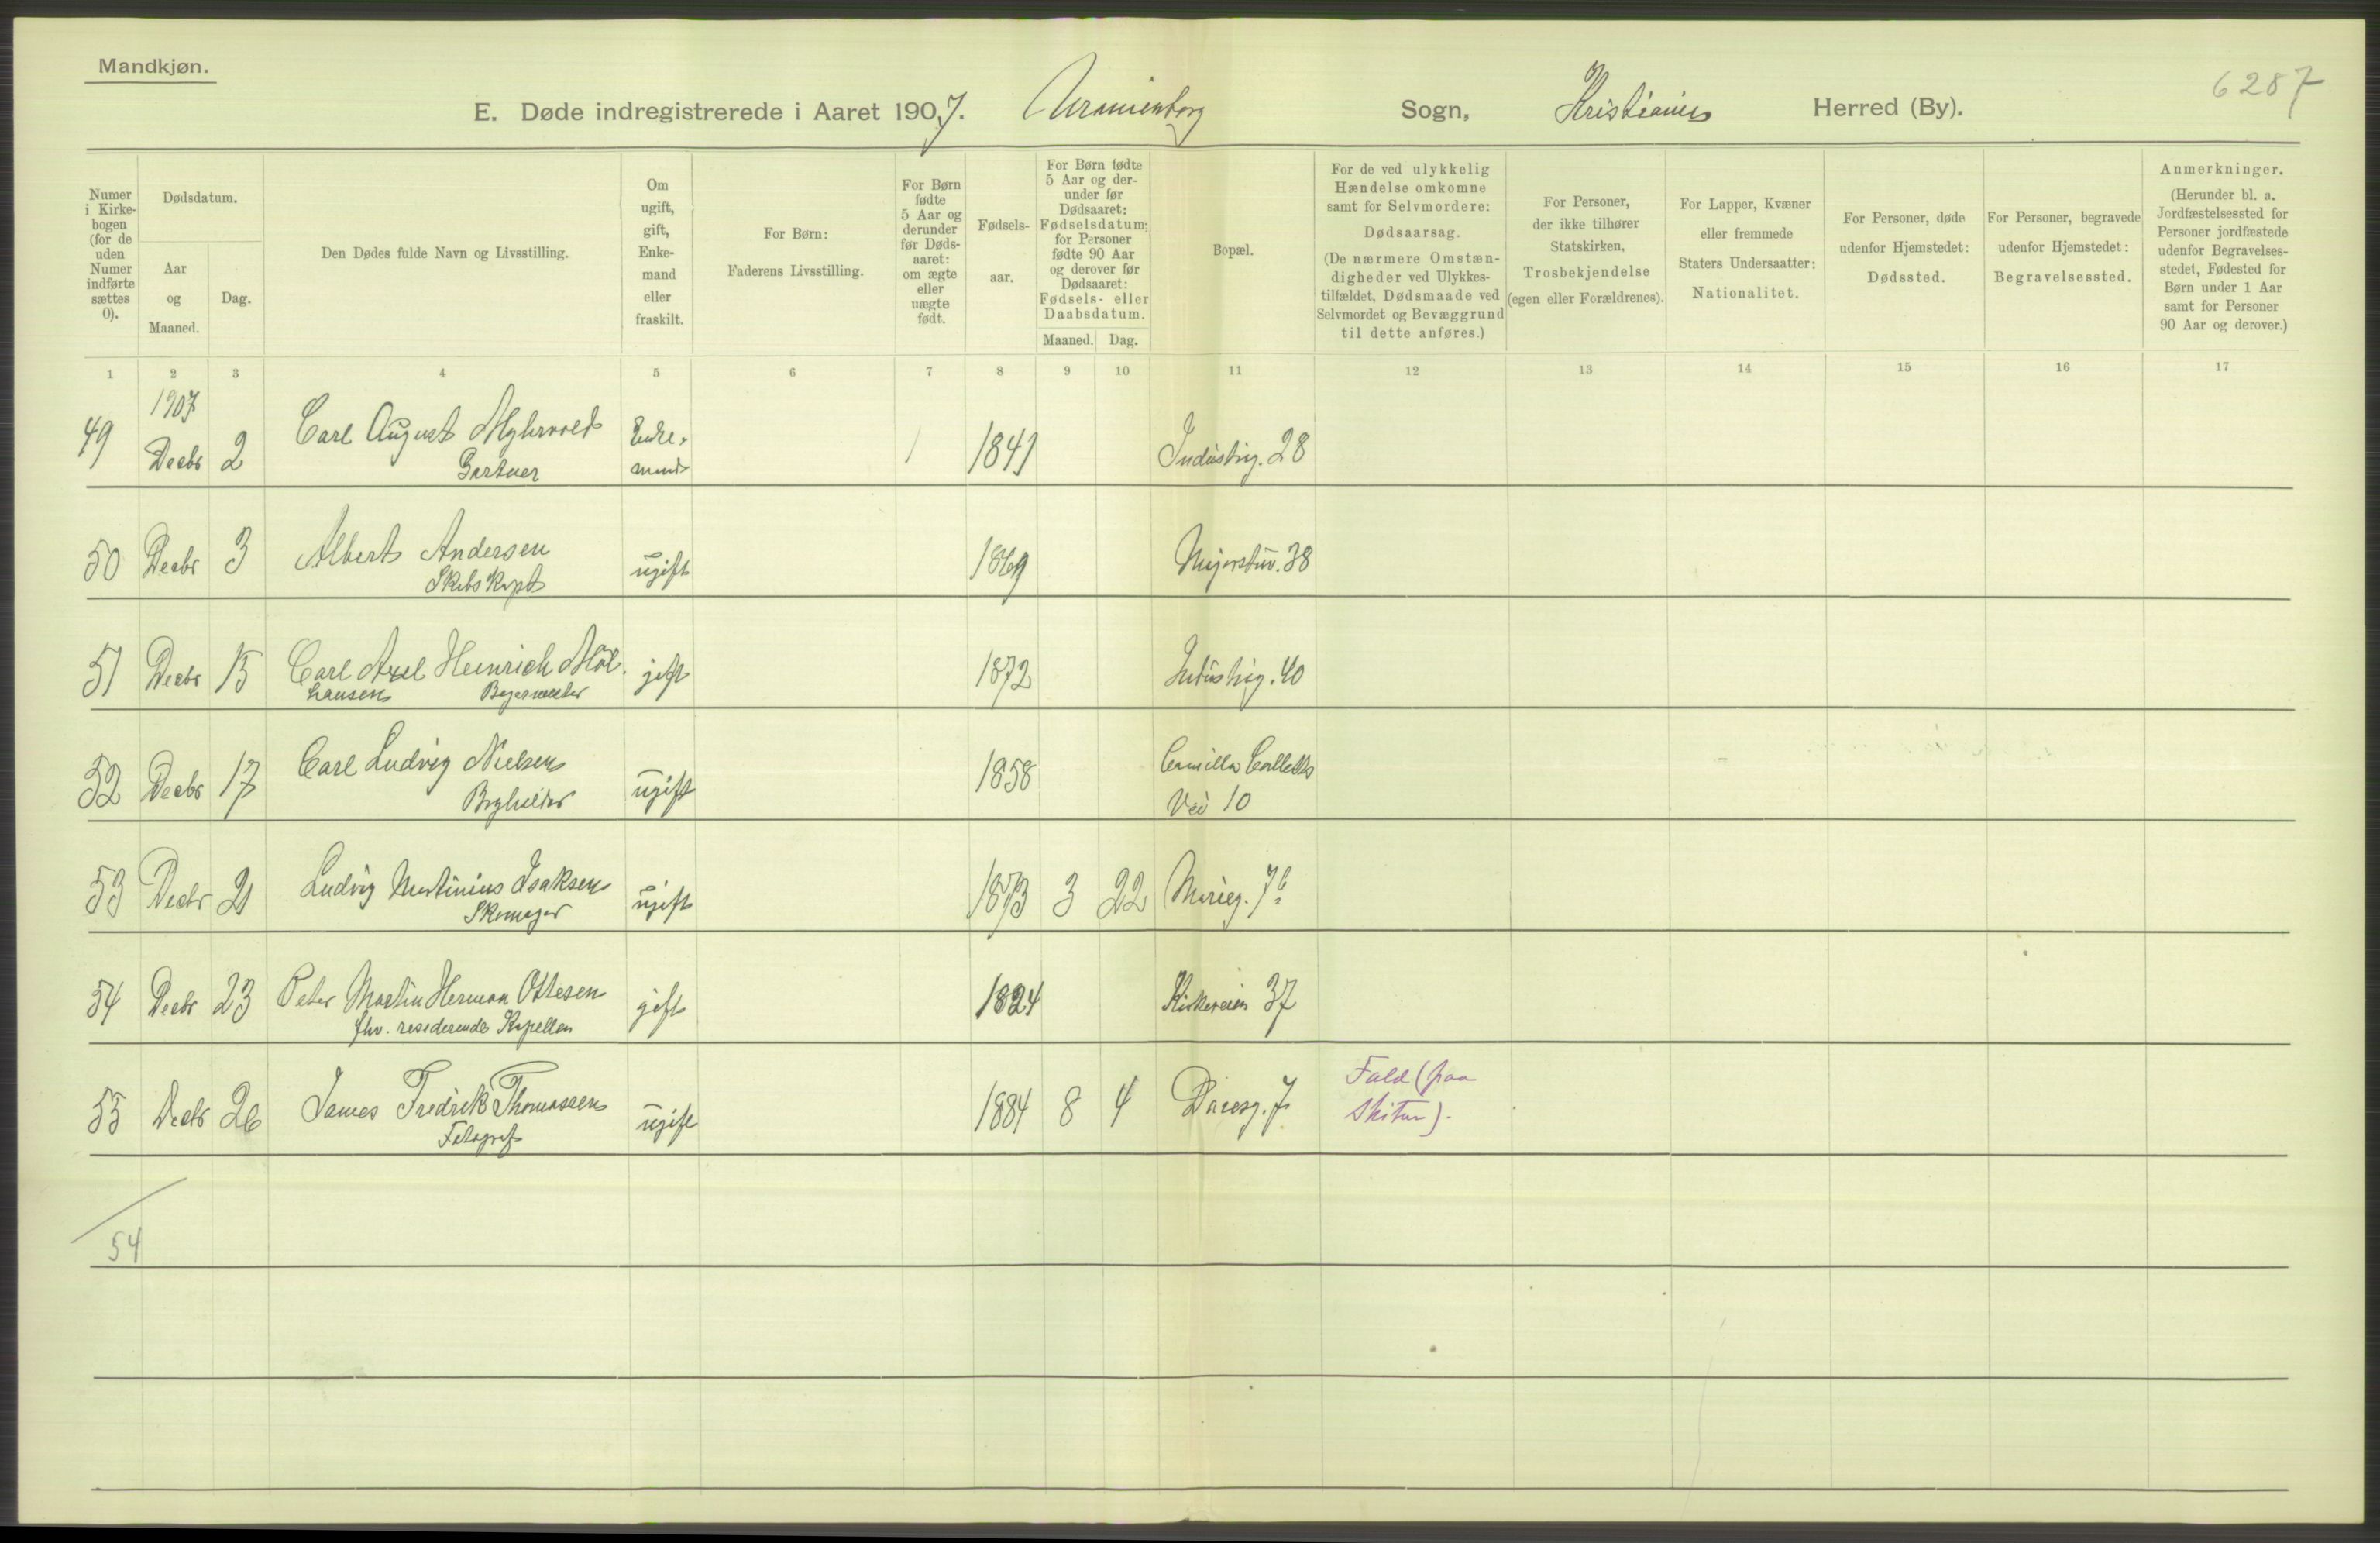 Mandkjøn.
6287
E. Døde indregistrerede i Aaret 1907. Uranienborg Sogn, Kristiania Herred (By).
Numer i Kirkebogen (for de uden Numer indførte sættes 0).
Dødsdatum.
Aar og Maaned.
Dag.
Den Dødes fulde Navn og Livsstilling.
Om ugift, gift, Enkemand eller fraskilt.
For Børn:
Faderens Livsstilling.
For Børn fødte 5 Aar og derunder før Dødsaaret: om ægte eller uægte født.
Fødselsaar.
For Børn fødte 5 Aar og derunder før Dødsaaret: Fødselsdatum; for Personer fødte 90 Aar og derover før Dødsaaret: Fødsels- eller Daabsdatum.
Maaned. Dag.
Bopæl.
For de ved ulykkelig Hændelse omkomne samt for Selvmordere: Dødsaarsag.
(De nærmere Omstændigheder ved Ulykkestilfældet, Dødsmaade ved Selvmordet og Bevæggrund til dette anføres.)
For Personer, der ikke tilhører Statskirken, Trosbekjendelse (egen eller Forældrenes).
For Lapper, Kvæner eller fremmede Staters Undersaatter: Nationalitet.
For Personer, døde udenfor Hjemstedet: Dødssted.
For Personer, begravede udenfor Hjemstedet: Begravelsessted.
Anmerkninger.
(Herunder bl. a. Jordfæstelsessted for Personer jordfæstede udenfor Begravelsesstedet, Fødested for Børn under 1 Aar samt for Personer 90 Aar og derover.)
1 2 3 4 5 6 7 8 9 10 11 12 13 14 15 16 17
1907
49 Decbr 2 Carl August Myhrvold Enke- 1841 Industrig. 28
Gartner mand
50 Decbr 3 Albert Andersen ugift 1869 Majorstuv. 38
Skibskapt
51 Decbr 15 Carl Axel Heinrich Möl- gift 1872 Industrig. 40
hausen
52 Decbr 17 Carl Ludvig Nielsen ugift 1858 Camilla Colletts
Vei 10
53 Decbr 21 Ludvig Martinius Isaksen ugift 1873 3 22
Skomager
54 Decbr 23 Peter Martin Herman Ottesen gift 1824 Kirkeveien 37
fhv. residerende Kapellan
55 Decbr 26 James Fredrik Thomassen ugift 1884 8 4 Daasg. 7 Fald (paa
Fotograf skitur).
54